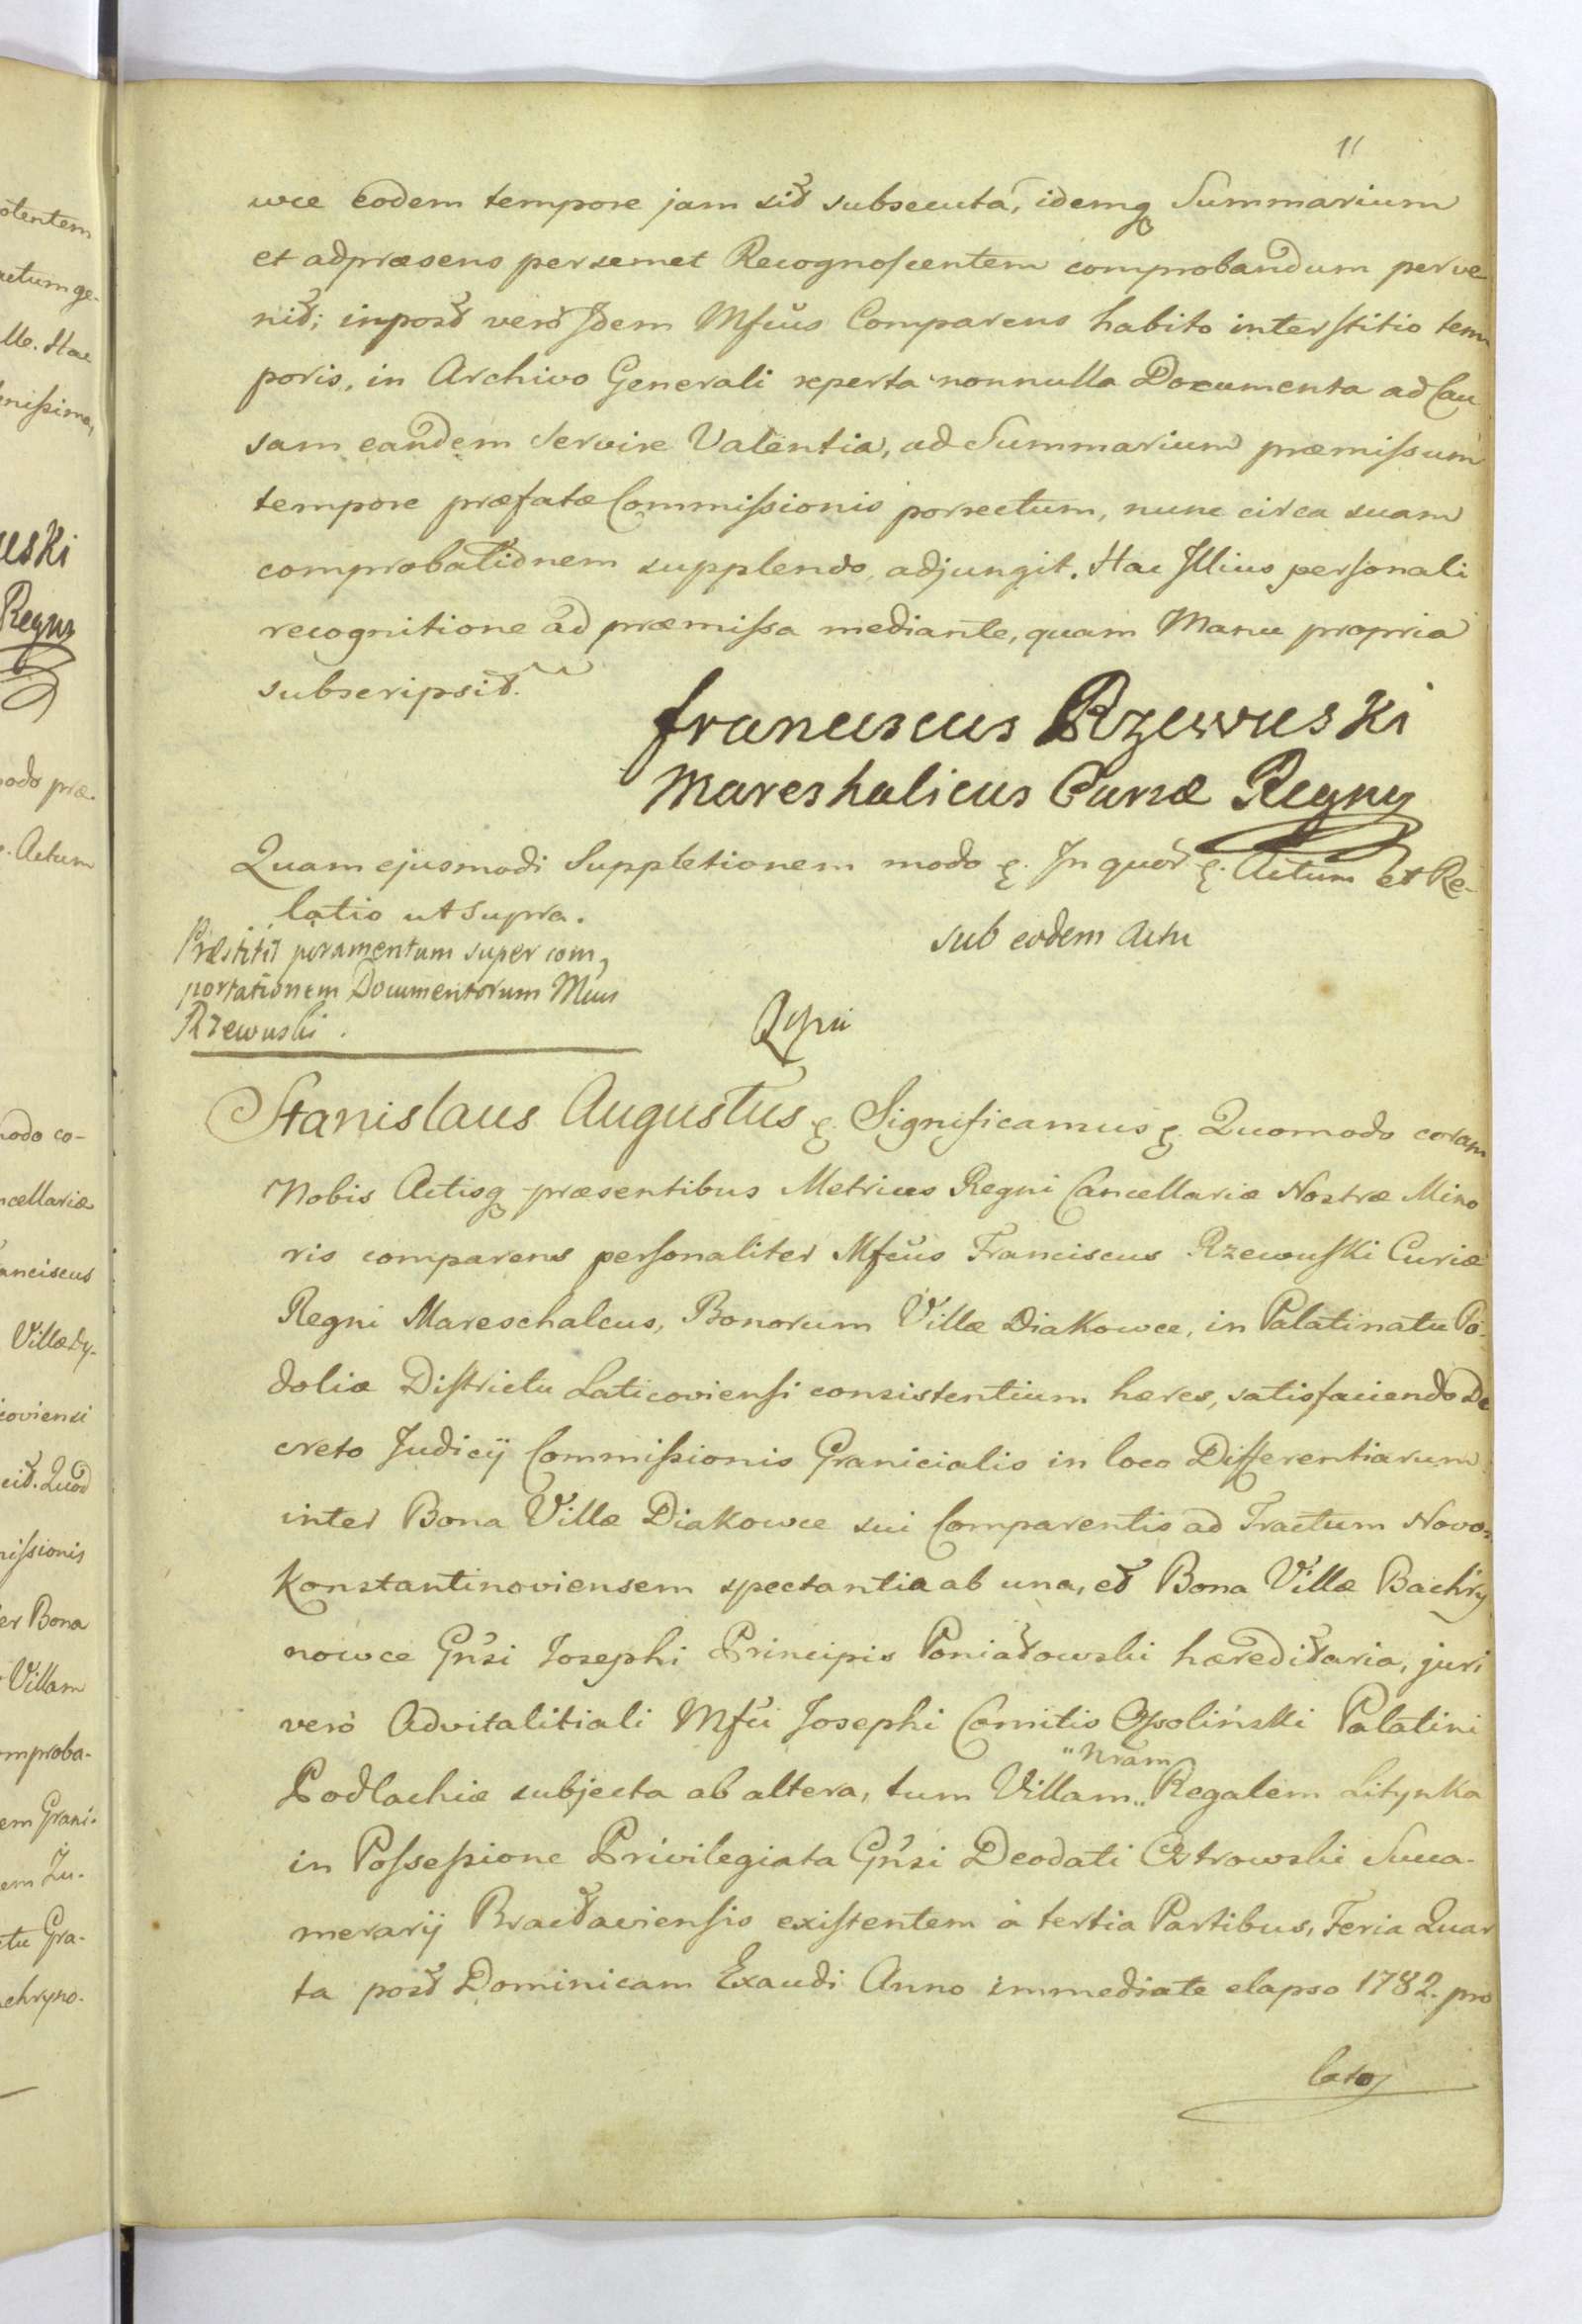 11
wce eodem tempore jam sit subsecuta, idemq Summarium
et adpræsens persemet Recognoscentem comprobandum perve
nit; inpost verò Idem Mfcus Comparens habito interstitio tem
poris, in Archivo Generali reperta nonnulla Documenta ad Cau
sam eandem servire Valentia, ad Summarium præmissum
tempore præfatæ Commissionis porrectum, nunc circa suam
comprobationem supplendo, adjungit. Hac Illius personali
recognitione ad præmissa mediante, quam Manu propria
subscripsit.
franciscus Rzewuski
Mareshalicus Curiæ Regny
Quam ejusmodi Suppletionem modo &. In quor &. Actum et Re-
latio ut supra.
sub eodem Actu
Præstitit juramentum super com,
portationem Documentorum Mcus
Rzewuski.
Stanislaus Augustus &. Significamus &. Quomodo coram
Nobis Actisq præsentibus Metrices Regni Cancellariæ Nostræ Mino
ris comparens personaliter Mfcus Franciscus Rzewuski Curiæ
Regni Mareschalcus, Bonorum Villæ Diakowce, in Palatinatu Po-
doliæ Districtu Laticoviensi consistentium hæres, satisfaciendo De
creto Judicij Commissionis Granicialis in loco Differentiarum
inter Bona Villæ Diakowce sui Comparentis ad Tractum Novo-
Konstantinoviensem spectantia ab una, et Bona Villæ Bachry
nowce Gnsi Josephi Principis Poniatowski hæreditaria, juri
verò Advitalitiali Mfci Josephi Comitis Ossoliński Palatini
Podlachiæ subjecta ab altera, tum Villam "Nram" Regalem Litynka
in Possessione Privilegiata Gnsi Deodati Ostrowski Succa-
merarij Braclaviensis existentem à tertia Partibus, Feria Quar
ta post Dominicam Exaudi Anno immediate elapso 1782. pro
lato